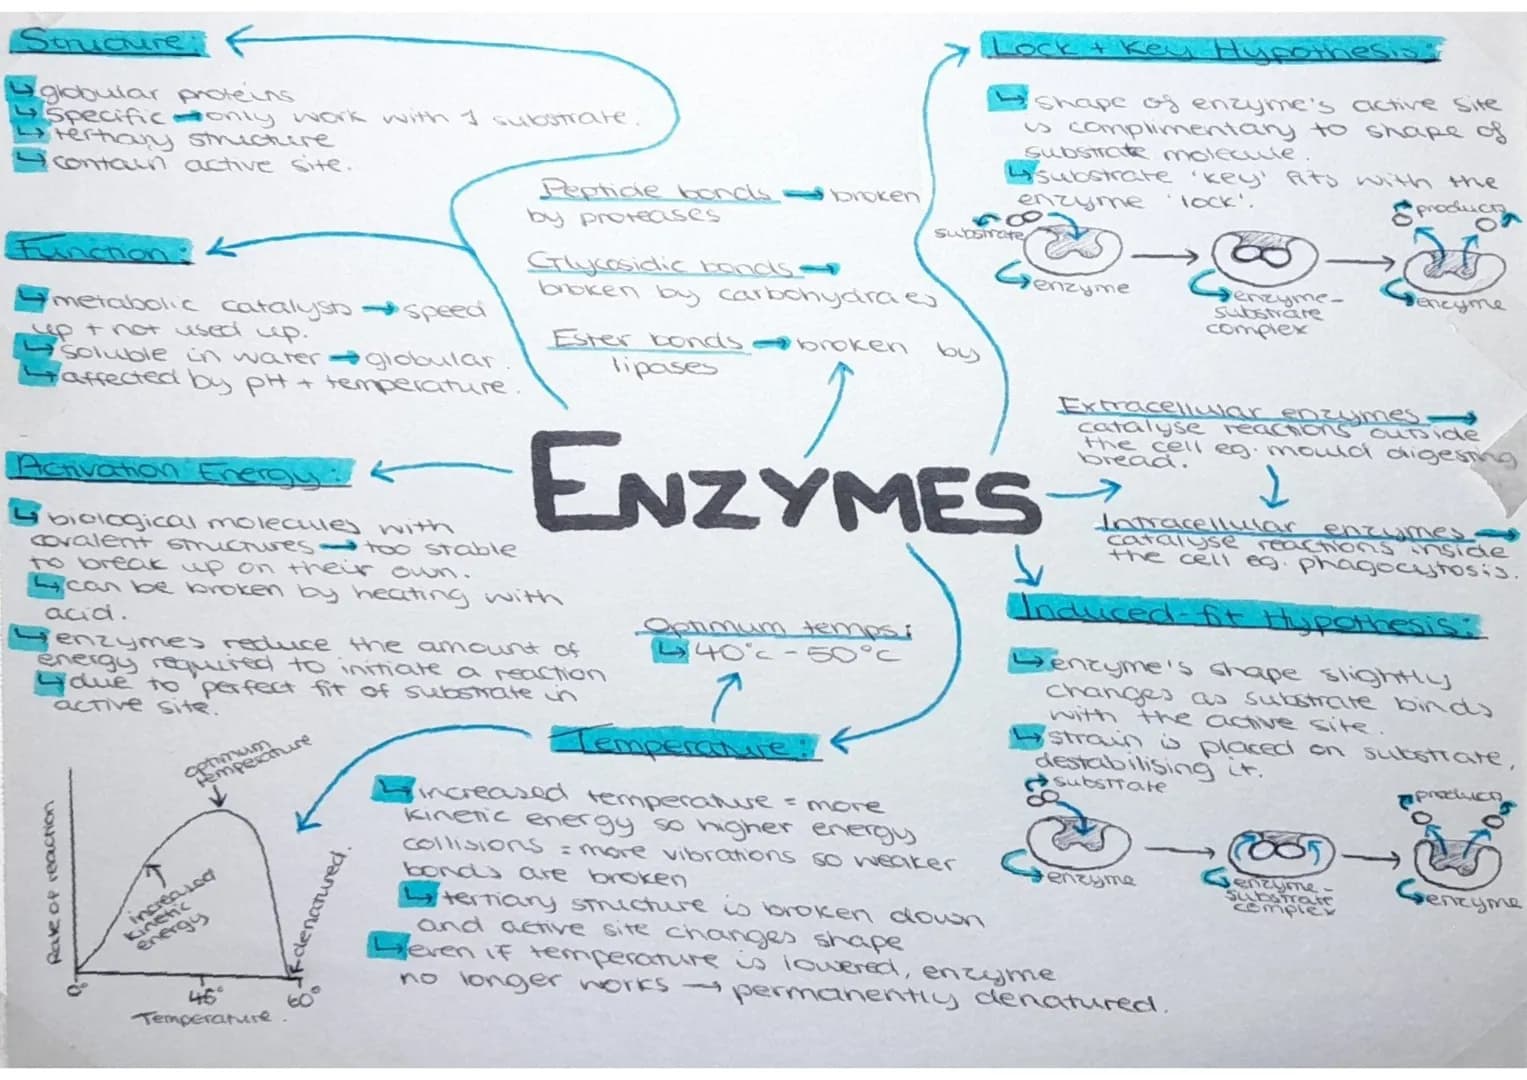 Structure:
↳ globular proteins
↳ specific → only work with 1 substrate.
↳ tertiary structure
↳ contain active site.
Function:
↳ metabolic catalysts → speed
up + not used up.
↳ soluble in water → globular.
↳ affected by pH + temperature.
Activation Energy:
↳ biological molecules with
covalent structures → too stable
to break up on their own.
↳ can be broken by heating with
acid.
↳ enzymes reduce the amount of
energy required to initiate a reaction
↳ due to perfect fit of substrate in
active site.
Peptide bonds → broken
by proteases
Glycosidic bonds →
broken by carbohydrates
Ester bonds → broken by
lipases
ENZYMES
Lock + Key Hypothesis:
↳ shape of enzyme's active site
is complimentary to shape of
substrate molecule.
↳ substrate 'key' fits with the
enzyme 'lock'.
substrate
products
enzyme
enzyme-
substrate
complex
enzyme
Extracellular enzymes →
catalyse reactions outside
the cell eg. mould digesting
bread.
Intracellular enzymes →
catalyse reactions inside
the cell eg. phagocytosis.
Induced-fit Hypothesis:
↳ enzyme's shape slightly
changes as substrate binds
with the active site.
↳ strain is placed on substrate,
destabilising it.
substrate
products
enzyme
enzyme-
substrate
complex
enzyme
Optimum temps:
↳ 40°c - 50°c
Temperature:
↳ increased temperature = more
kinetic energy so higher energy
collisions = more vibrations so weaker
bonds are broken
↳ tertiary structure is broken down
and active site changes shape
↳ even if temperature is lowered, enzyme
no longer works → permanently denatured.
optimum
temperature
Rate of reaction
increased
kinetic
energy
denatured.
0°
45°
60°
Temperature.